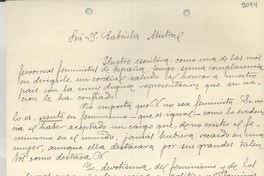 9044
Sra Dª Gabriela Mistral
Ilustre escritora: como una de las más
fervorosas feministas de España, tengo suma complacencia
en dirigirle un cordial saludo al honrar a nuestro
país con la muy digna representación que su na-
le ha confiado.
No importa que V no sea feminista. Si
lo es, siente en feminista – que es igual – como lo evidencia
el haber aceptado un cargo que, donde existe el fe-
minismo en el mundo, jamás hubiera recaído en una
mujer, aunque ella destacara por sus grandes talen-
tos como destaca V.
Yo, devotísima del feminismo y de los